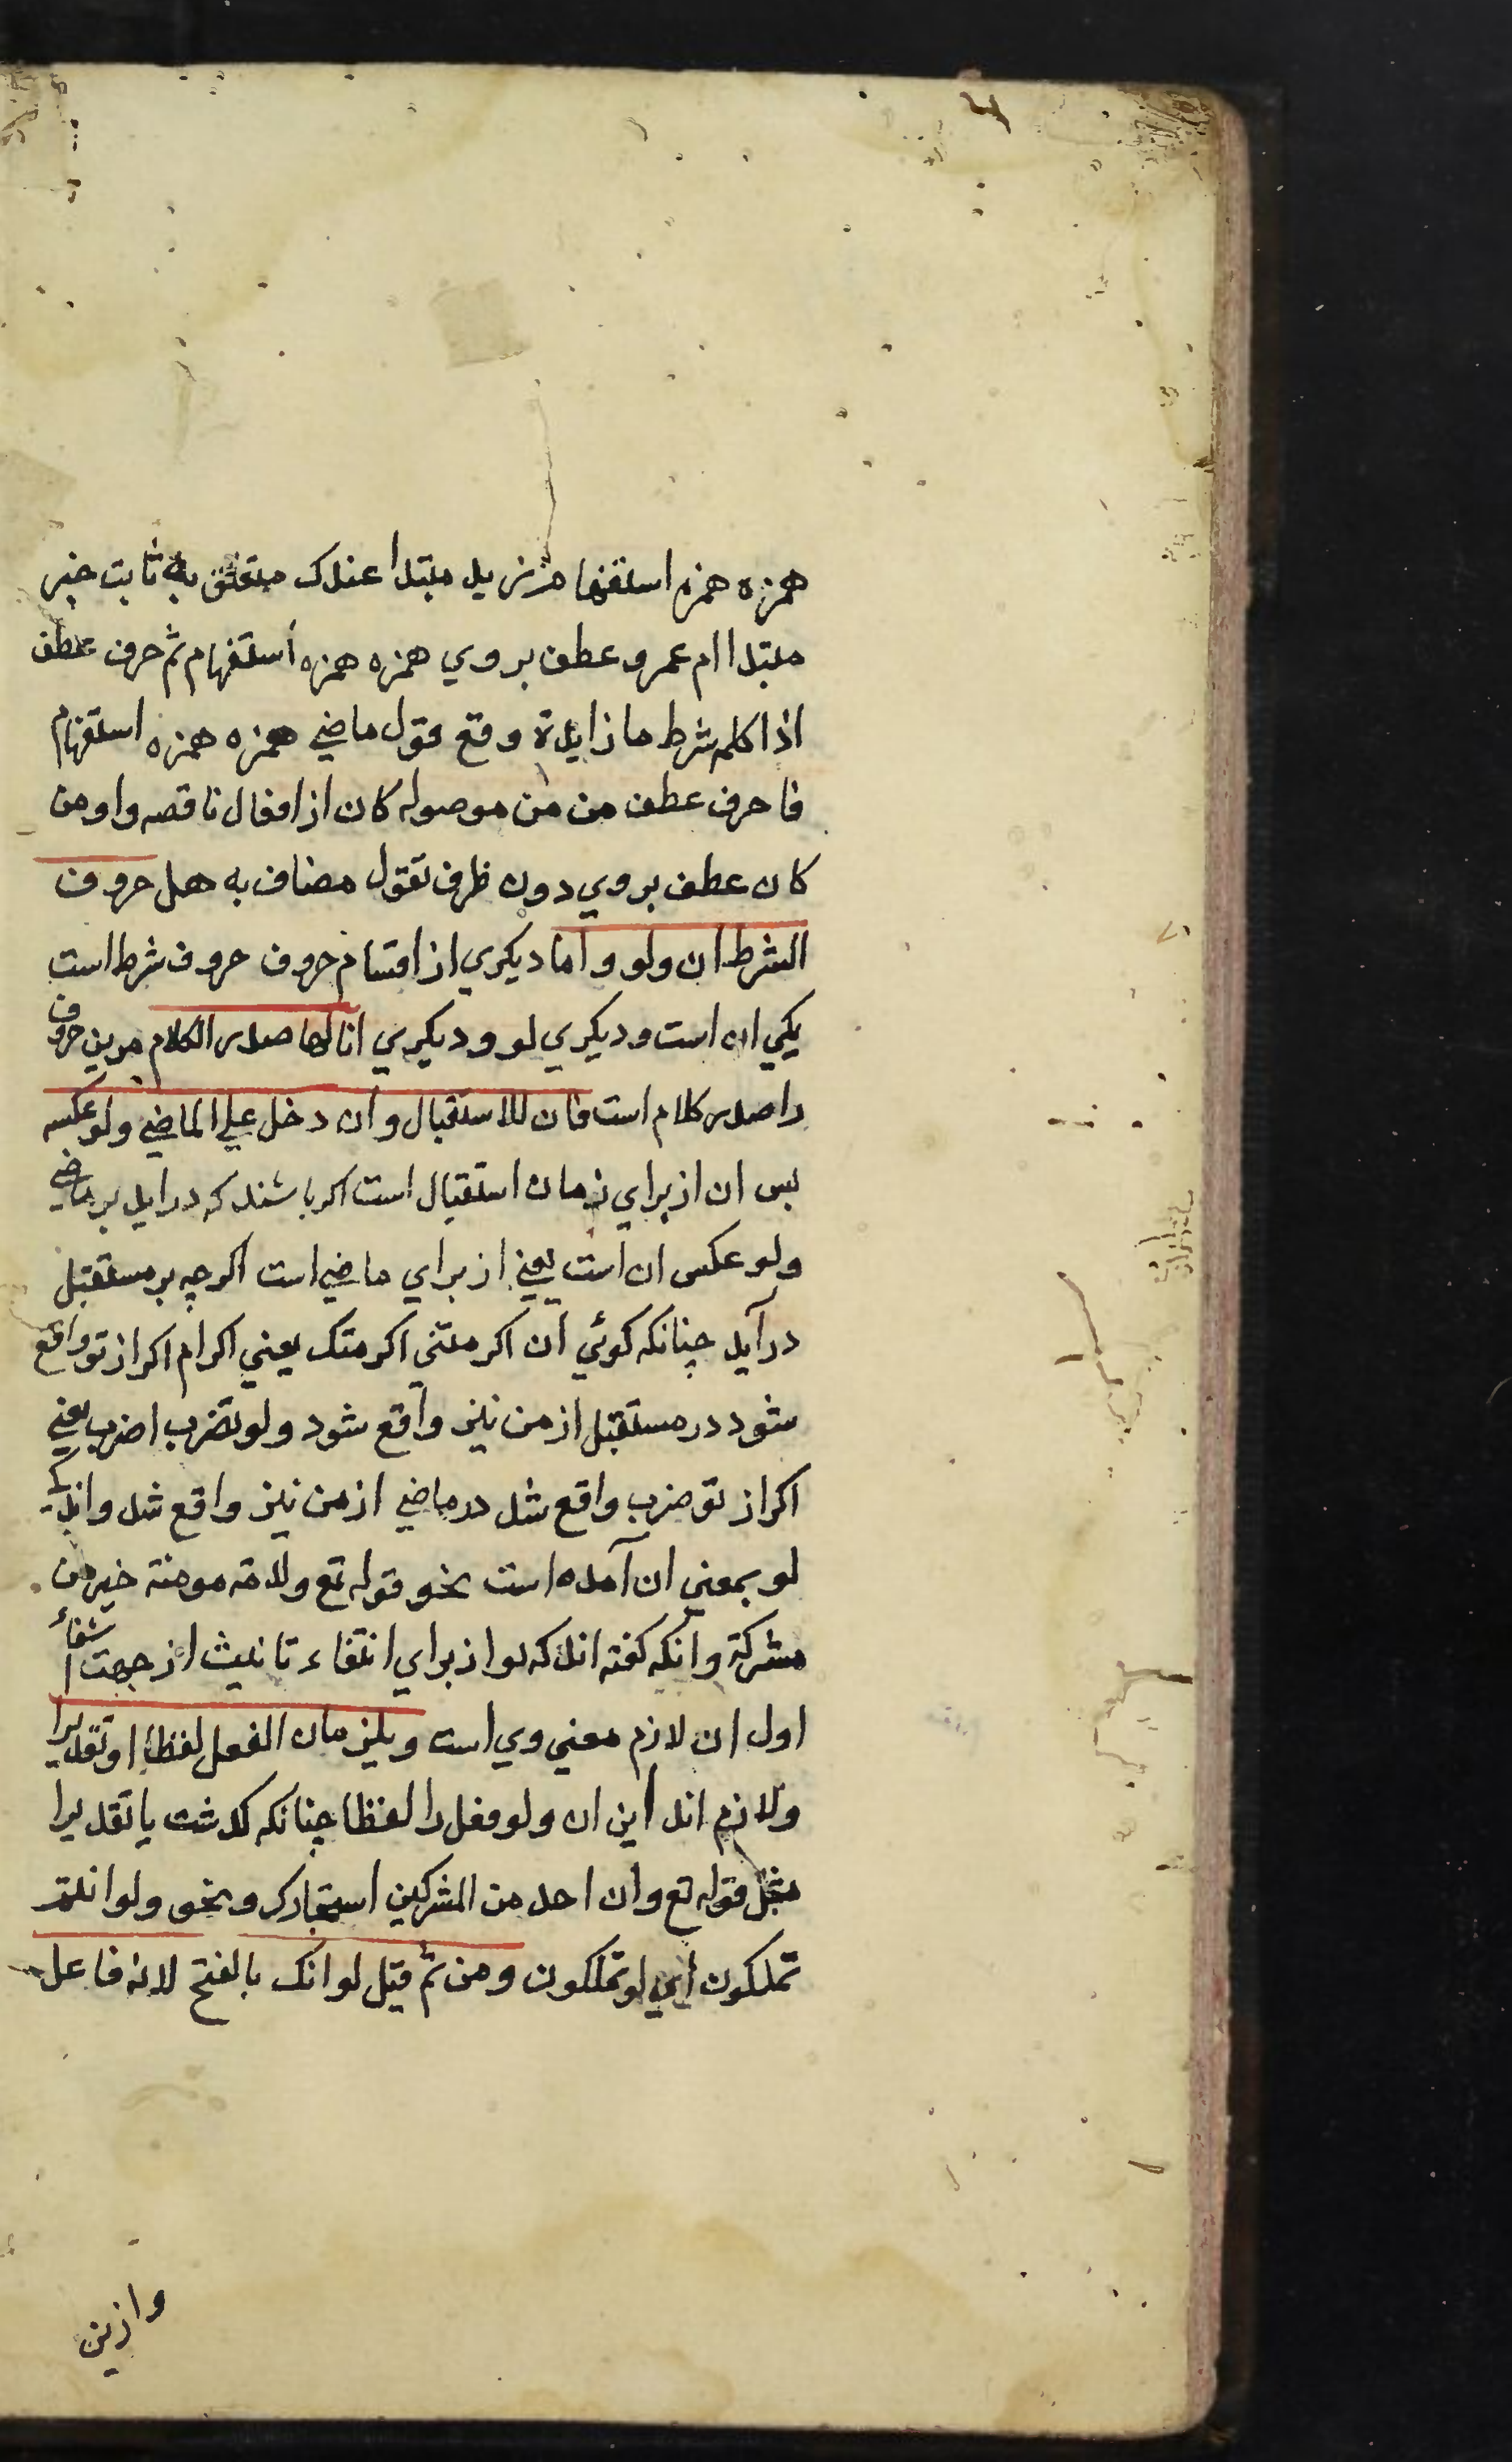 همزه همزه استفهام زید مبتدا عندک متعلق به ثابت خبر
مبتدا ام عمرو عطف بروي همزه همزه استفهام ثم حرف عطف
اذا کلمه شرط ما زایدة وقع قول ماضي همزه همزه استفهام
فا حرف عطف من من موصوله کان از افعال ناقصه واو من
کان عطف بروي دون ظرف تقول مضاف به هل حروف
الشرط ان ولو واما دیکري از اقسام حروف حروف شرط است
یکي ان است ودیکري لو ودیکري اما لها صدر الکلام مرین حروف
را صدر کلام است فان للاستقبال وان دخل علي الماضي ولو عکسه
بس ان از براي زمان استقبال است اکر باشند که در اید بر ماضي
ولو عکس ان است یعني از براي ماضي است اکرچه بر مستقبل
درآید چنانکه کوئي ان اکرمتني اکرمتک یعني اکرام اکر از تو واقع
شود در مستقبل از من نیز واقع شود ولو تضرب اضرب یعني
اکر از تو ضرب واقع شد در ماضي از من نیز واقع شد وانکه
لو بمعني ان آمده است نحو قوله تع ولامة مومنة خیر من
مشرکة وانکه کفته اند که لو از براي انتفاء ثانیست از جهت انتفاء
اول ان لازم معني وي است ویلزمان الفعل لفظا او تقدیرا
ولازم اند این ان ولو فعل را لفظا چنانکه کذشت یا تقدیرا
مثل قوله تع وان احد من المشرکین استجارک ونحو ولو انتم
تملکون اي لو تملکون ومن ثم قیل لو انک بالفتح لانه فاعل
وازین